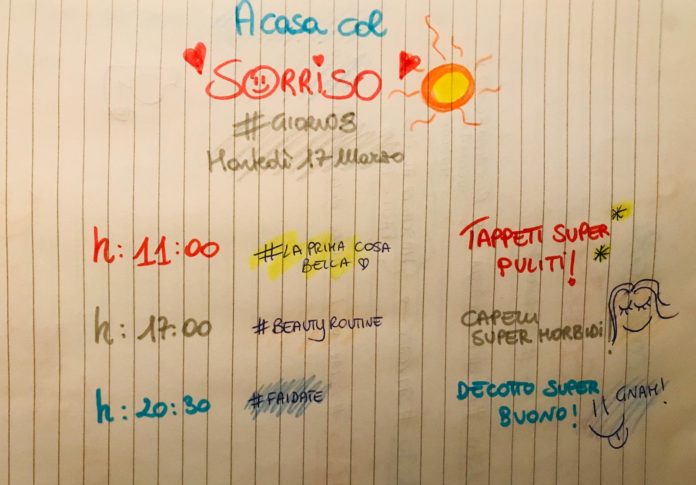 A casa col
SORRISO
#GIORNO8
Martedì 17 Marzo
h: 11:00 #LA PRIMA COSA BELLA TAPPETI SUPER PULITI!
h: 17:00 #BEAUTYROUTINE CAPELLI SUPER MORBIDI!
h: 20:30 #FAIDATE DECOTTO SUPER BUONO! GNAM!